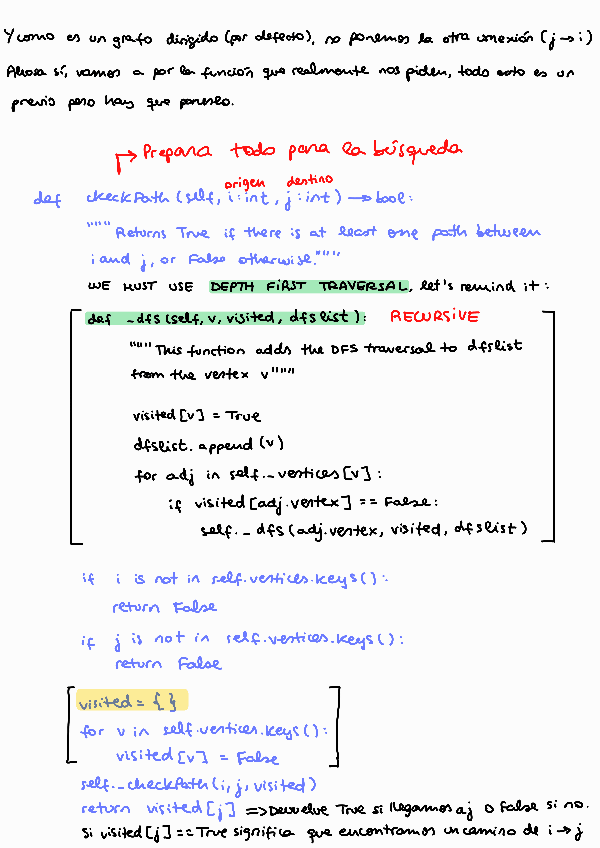 Y como es un grafo dirigido (por defecto), no ponemos la otra conexión (j → i)
Ahora sí, vamos a por la función que realmente nos piden, todo esto es un
previo pero hay que ponerlo.
↱ Prepara todo para la búsqueda
origen destino
def checkPath (self, i:int, j:int) → bool:
"""Returns True if there is at least one path between
i and j, or False otherwise."""
WE MUST USE DEPTH FIRST TRAVERSAL, let's remind it:
def _dfs (self, v, visited, dfslist): RECURSIVE
"""This function adds the DFS traversal to dfslist
from the vertex v"""
visited [v] = True
dfslist. append (v)
for adj in self._vertices [v]:
if visited [adj.vertex] == False:
self. _ dfs (adj.vertex, visited, dfslist)
if i is not in self.vertices.keys():
return False
if j is not in self.vertices.keys():
return False
visited = { }
for v in self.vertices.keys():
visited [v] = False
self._checkPath (i, j, visited)
return visited [j] => Devuelve True si llegamos a j o False si no.
Si visited [j] == True significa que encontramos un camino de i → j